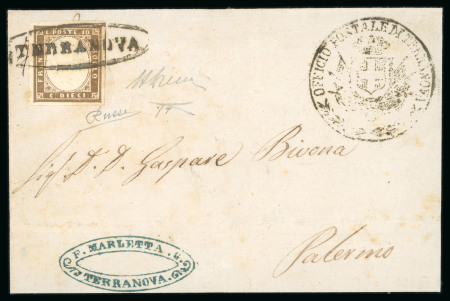 C. POSTE 10
FRANCO
BOLLO
C. DIECI
TERRANOVA
OFFICIO POSTALE DI TERRANOVA
Russo
Sig.r D. D. Gaspare Bivona
Palermo
F. MARLETTA G.
TERRANOVA